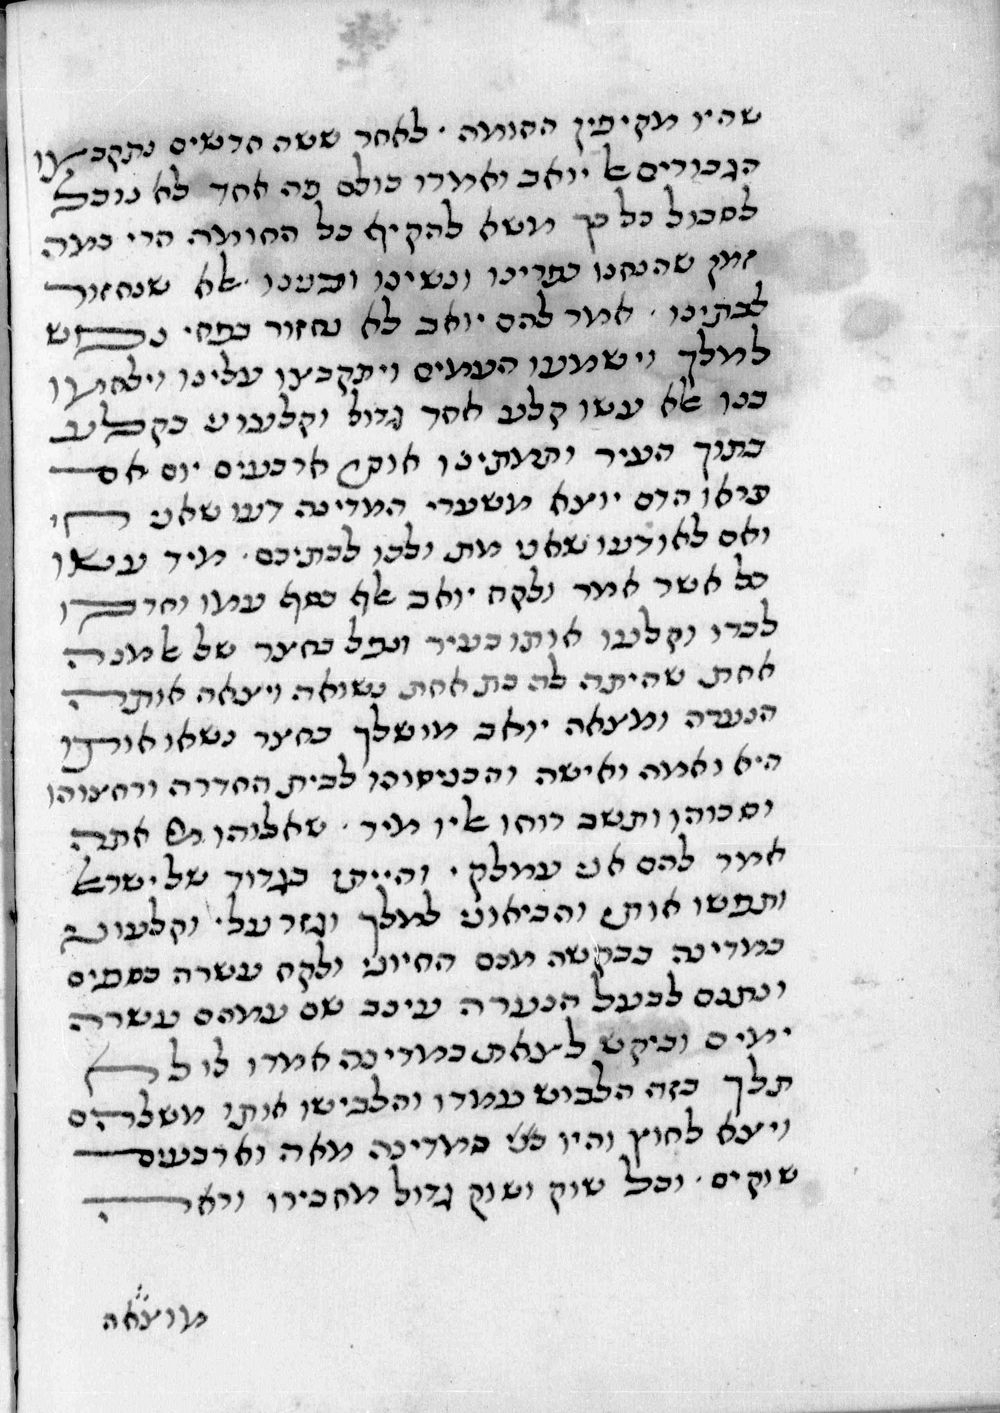 שהיו מקיפין החומה · לאחר ששה חדשים נתקבצו
הגבורים אל יואב ואמרו כולם פה אחד לא נוכל
לסבול כל כך משא להקיף כל החומה הרי כמה
זמן שהנחנו בתינו ונשינו ובנינו · אלא שנחזור
לבתינו · אמר להם יואב לא נחזור בפחי נפש
למלך וישמעו העמים ויתקבצו עלינו וילחמו
בנו אלא עשו קלע אחד גדול וקלעוני בקלע
בתוך העיר והמתינו אותי ארבעים יום אם
תראו הדם יוצא משערי המדינה דעו שאני חי
ואם לאו דעו שאני מת ולכו לבתיכם · מיד עשו
כל אשר אמר ולקח יואב אלף כסף עמו וחרבו
לבדו וקלעו אותו בעיר ונפל בחצר של אלמנה
אחת שהיתה לה בת אחת נשואה ויצאה אותה
הנערה ומצאה יואב מושלך בחצר נשאו אותו
היא ואמה ואישה והכניסוהו לבית החדרה ורחצוהו
וסכוהו ותשב רוחו אליו מיד · שאלוהו מי אתה
אמר להם אני עמלקי והייתי בגדוד של ישראל
ותפשו אותי והביאוני למלך וגזר עלי וקלעוני
במדינה בבקשה מכם החיוני ולקח עשרה כספים
ונתנם לבעל הנערה עיכב שם עמהם עשרה
ימים וביקש לצאת במדינה אמרו לו לא
תלך בזה הלבוש עמדו והלבישו אותו משלהם
ויצא לחוץ והיו במדינה מאה וארבעים
שוקים · וכל שוק ושוק גדול מחבירו וראה
מוצאה